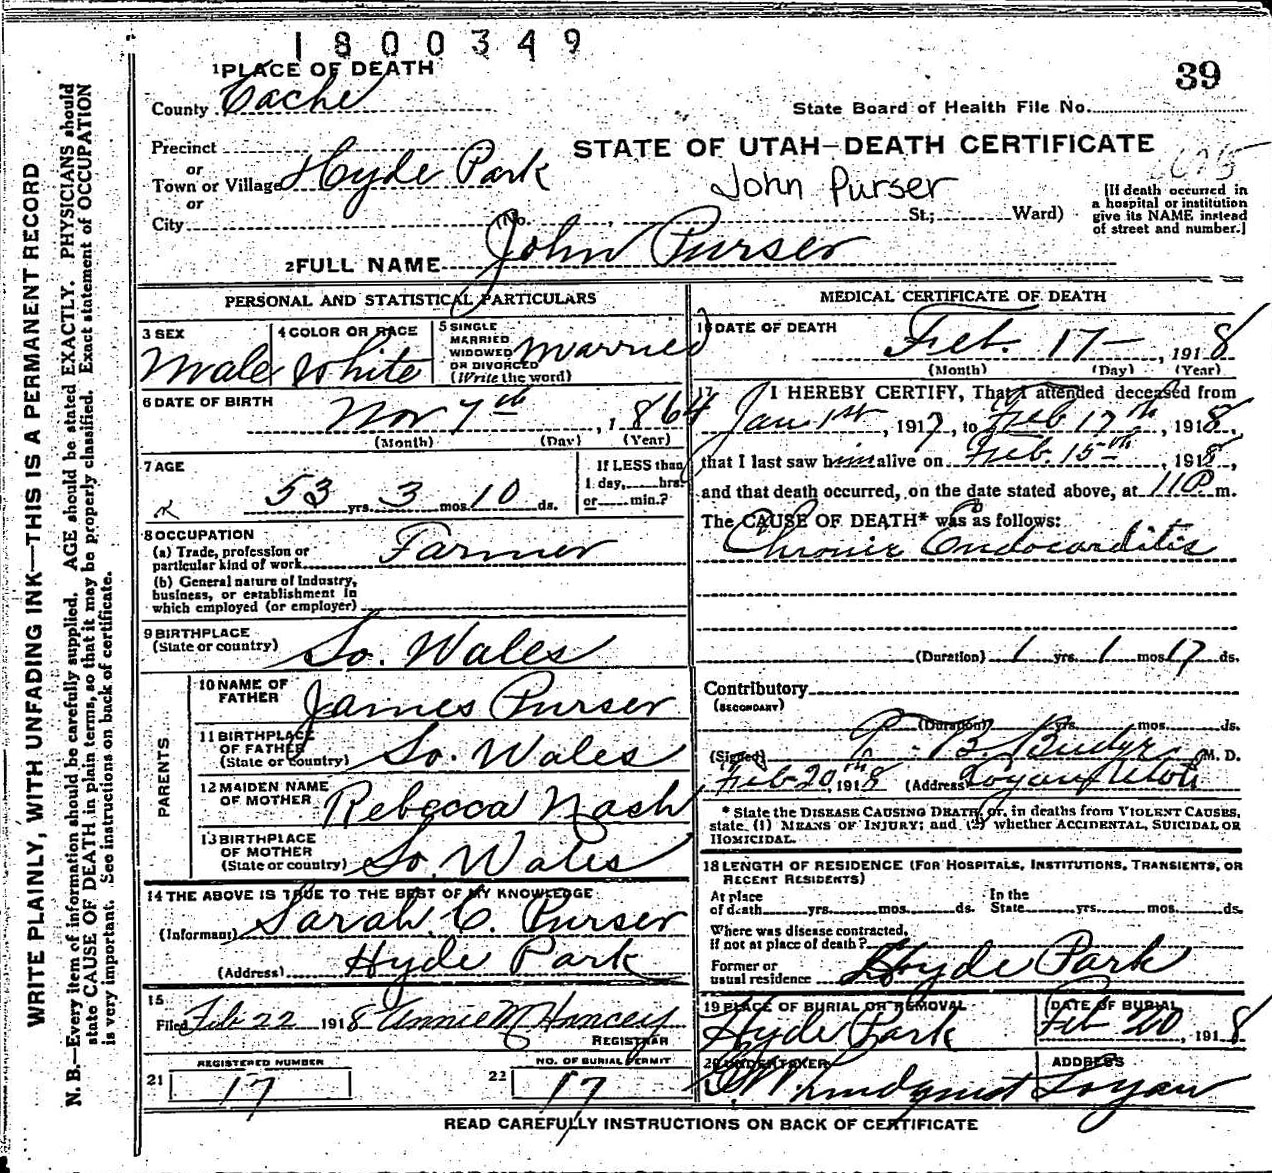 1800349
39
1 PLACE OF DEATH
County Cache
State Board of Health File No.
Precinct
or
Town or Village Hyde Park
or
City
STATE OF UTAH—DEATH CERTIFICATE
John Purser
(No. St.; Ward)
[If death occurred in
a hospital or institution
give its NAME instead
of street and number.]
2 FULL NAME John Purser
PERSONAL AND STATISTICAL PARTICULARS
3 SEX
Male
4 COLOR OR RACE
White
5 SINGLE
MARRIED
WIDOWED
OR DIVORCED
(Write the word)
Married
6 DATE OF BIRTH
Nov 7th, 1864
(Month) (Day) (Year)
7 AGE
53 yrs. 3 mos. 10 ds.
If LESS than
1 day, hrs.
or min.?
8 OCCUPATION
(a) Trade, profession or
particular kind of work Farmer
(b) General nature of Industry,
business, or establishment in
which employed (or employer)
9 BIRTHPLACE
(State or country) So. Wales
PARENTS
10 NAME OF
FATHER James Purser
11 BIRTHPLACE
OF FATHER
(State or country) So. Wales
12 MAIDEN NAME
OF MOTHER Rebecca Nash
13 BIRTHPLACE
OF MOTHER
(State or country) So. Wales
14 THE ABOVE IS TRUE TO THE BEST OF MY KNOWLEDGE
(Informant) Sarah C. Purser
(Address) Hyde Park
15
Filed Feb 22 1918 Annie M Hancey
REGISTRAR
REGISTERED NUMBER
21 17
NO. OF BURIAL PERMIT
22 17
MEDICAL CERTIFICATE OF DEATH
16 DATE OF DEATH
Feb. 17—, 1918
(Month) (Day) (Year)
17 I HEREBY CERTIFY, That I attended deceased from
Jan 1st, 1917, to Feb 17th, 1918,
that I last saw him alive on Feb. 15th, 1918,
and that death occurred, on the date stated above, at m.
The CAUSE OF DEATH* was as follows:
Chronic Endocarditis
(Duration) 1 yrs. 1 mos. 17 ds.
Contributory
(SECONDARY)
(Duration) yrs. mos. ds.
(Signed) M. D.
Feb 20th, 1918 (Address) Logan Utah
* State the DISEASE CAUSING DEATH, or, in deaths from VIOLENT CAUSES,
state (1) MEANS OF INJURY; and (2) whether ACCIDENTAL, SUICIDAL OR
HOMICIDAL.
18 LENGTH OF RESIDENCE (FOR HOSPITALS, INSTITUTIONS, TRANSIENTS, OR
RECENT RESIDENTS)
At place
of death yrs. mos. ds.
In the
State yrs. mos. ds.
Where was disease contracted,
if not at place of death?
Former or
usual residence Hyde Park
19 PLACE OF BURIAL OR REMOVAL
Hyde Park
DATE OF BURIAL
Feb 20, 1918
20 UNDERTAKER
Lindquist
ADDRESS
Logan
READ CAREFULLY INSTRUCTIONS ON BACK OF CERTIFICATE
WRITE PLAINLY, WITH UNFADING INK—THIS IS A PERMANENT RECORD
N. B.—Every item of information should be carefully supplied. AGE should be stated EXACTLY. PHYSICIANS should
state CAUSE OF DEATH in plain terms, so that it may be properly classified. Exact statement of OCCUPATION
is very important. See instructions on back of certificate.